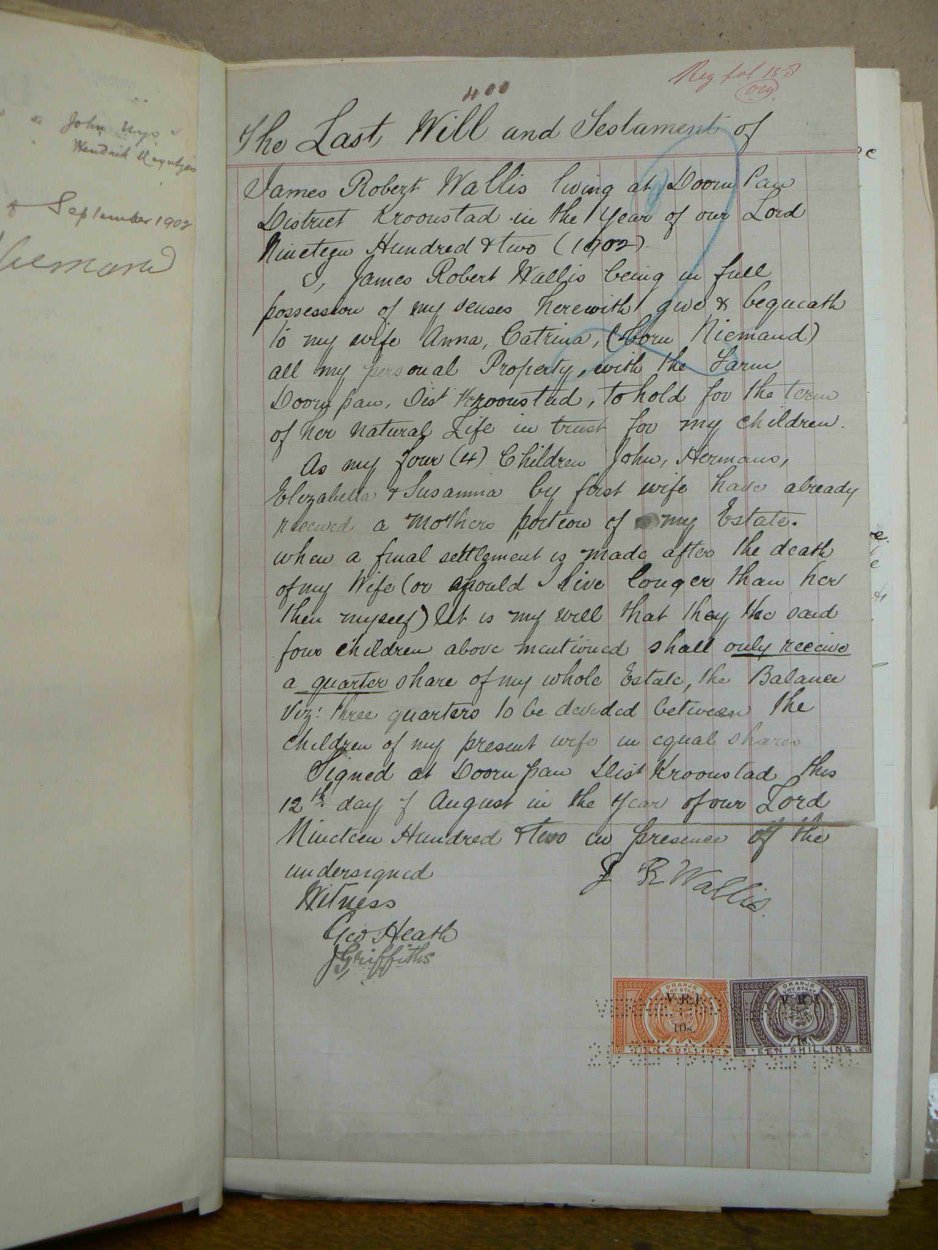 John Uys
Hendrik
September 1902
Niemand
Reg fol 158
Org
400
The Last Will and Testament of
James Robert Wallis living at Doorn Pan
District Kroonstad in the Year of our Lord
Nineteen Hundred & two (1902).
I, James Robert Wallis being in full
possession of my senses herewith give & bequeath
to my wife Anna, Catrina, (born Niemand)
all my personal Property, with the Farm
Doorn pan, Dist Kroonstad, to hold for the term
of her natural Life in trust for my children.
As my four (4) Children John, Hermans,
Elizabella & Susanna by first wife have already
received a Mothers portion of my Estate.
when a final settlement is made after the death
of my Wife (or should I live longer than her
then myself) It is my will that they the said
four children above mentioned shall only receive
a quarter share of my whole Estate, the Balance
Viz: three quarters to be devided between the
children of my present wife in equal shares
Signed at Doorn pan Dist Kroonstad this
12th day of August in the Year of our Lord
Nineteen Hundred & two in presence of the
undersigned
J R Wallis.
Witness
Geo Heath
J Griffiths
ORANJE VRY STAAT
V.R.I.
10s
TIEN SHILLINGS
ORANJE VRY STAAT
V.R.I.
1s
EEN SHILLING